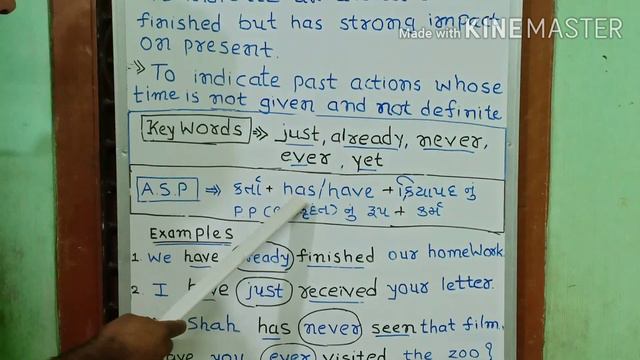 finished but has strong impact
on present.
Made with KINEMASTER
⇒ To indicate past actions whose
time is not given and not definite
Key Words ⇒ just, already, never,
ever, yet
A.S.P ⇒ કર્તા + has/have + ક્રિયાપદ નું
P.P નું રૂપ + કર્મ
Examples
1. We have finished our homework.
2. I just received your letter.
Shah has never seen that film.
you ever visited the zoo?